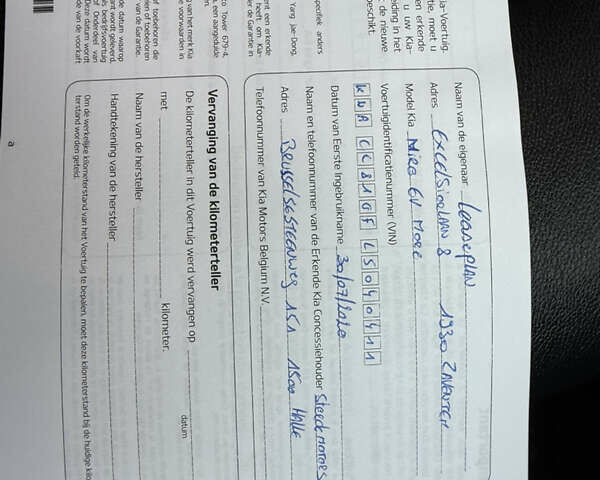 ia-Voertuig
tie moet u
en erkende
u uw Kia-
eiding in het
de nieuwe
eschikt.
pecifiek anders
Yang Jae-Dong,
nt een erkende
heeft om Kia-
er de Garantie in
to Tower 679-4,
, een aangeduide
g van het merk Kia
e voorwaarden in
of toebehoren de
elen of toebehoren
r van de Garantie.
de datum waarop
ant wordt geleverd.
als bedrijfsvoertuig
of Onderdeel van
Deze datum wordt
nde van de voorkaft
Naam van de eigenaar Leaseplan
Adres Excelsiorlaan 8 1930 Zaventem
Model Kia Niro EV More
Voertuigidentificatienummer (VIN)
KNACC81GFL5040411
Datum van Eerste Ingebruikname 30/07/2020
Naam en telefoonnummer van de Erkende Kia Concessiehouder Steeckmotors
Adres Brusselsesteenweg 151 1500 Halle
Telefoonnummer van Kia Motors Belgium N.V.
Vervanging van de kilometerteller
De kilometerteller in dit Voertuig werd vervangen op
datum
met kilometer.
Naam van de hersteller
Handtekening van de hersteller
Om de werkelijke kilometerstand van het Voertuig te bepalen, moet deze kilometerstand bij de huidige kilo
terstand worden geteld.
a